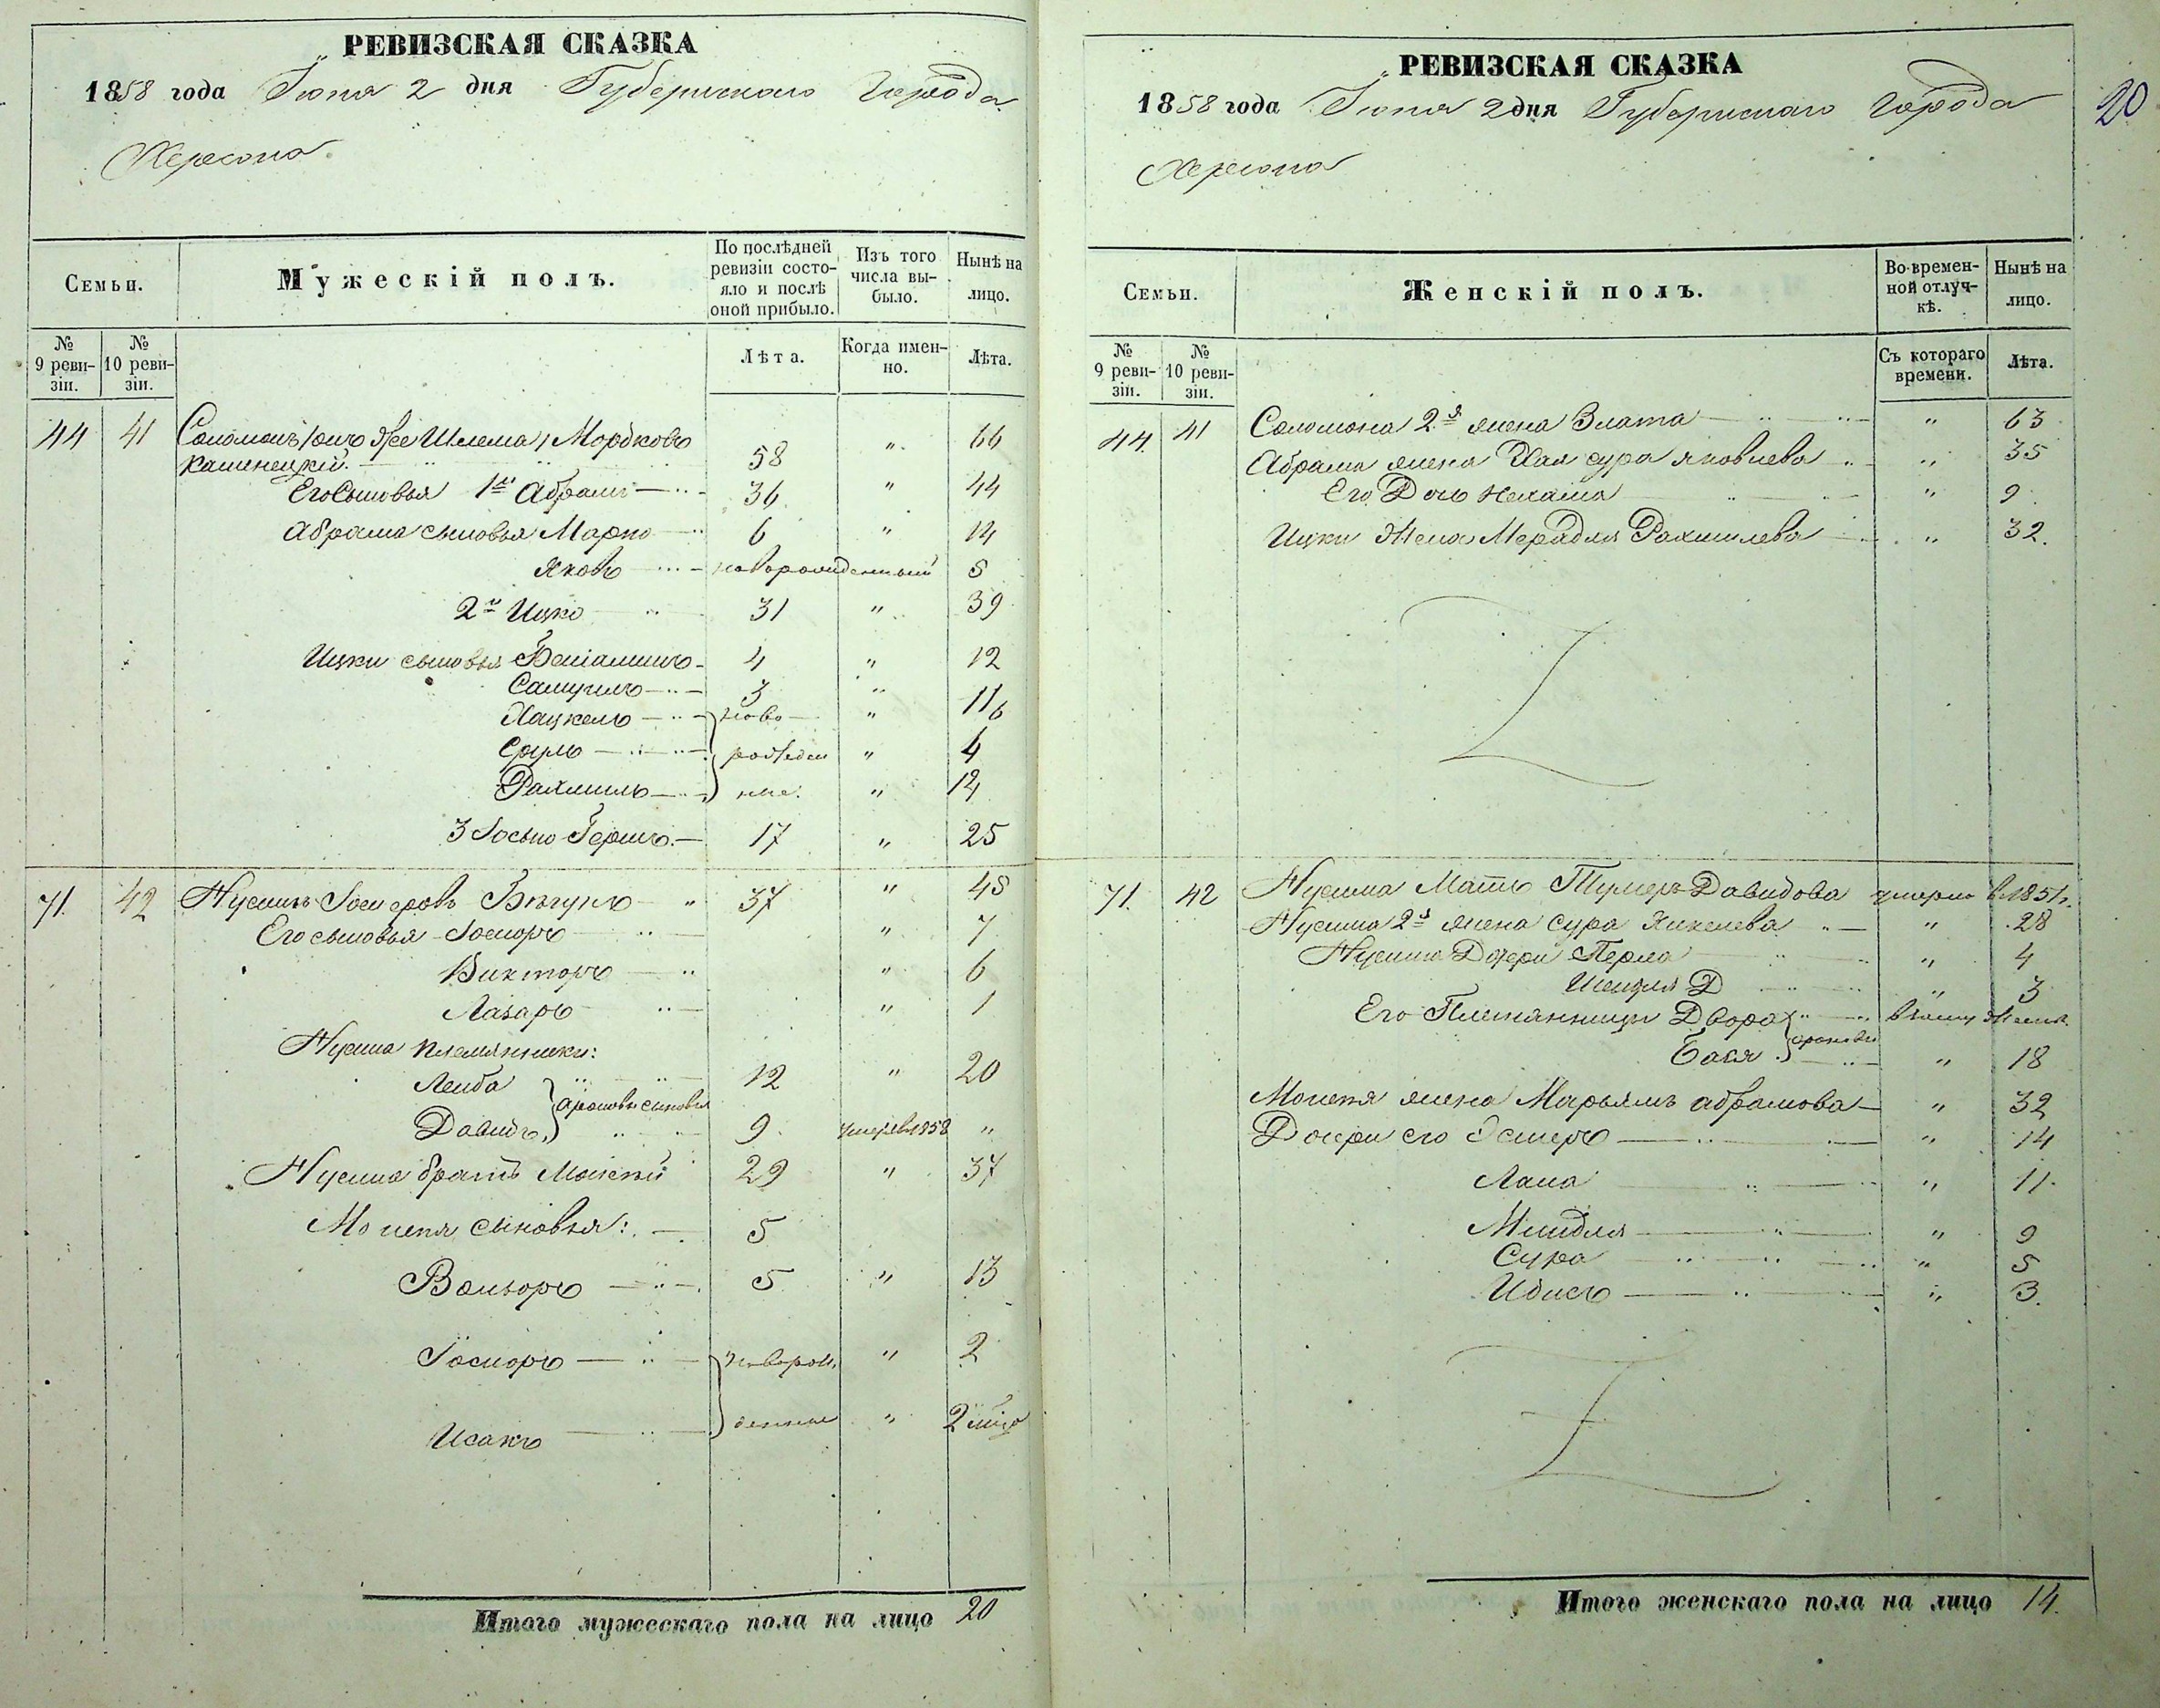 РЕВИЗСКАЯ СКАЗКА
1858 года Іюня 2 дня Губернскаго Города
Херсона.
Семьи.
Мужескій полъ.
По послѣдней ревизіи состояло и послѣ оной прибыло.
Изъ того числа выбыло.
Нынѣ на лицо.
№ 9 ревизіи.
№ 10 ревизіи.
Лѣта.
Когда именно.
Лѣта.
44 41 Соломонъ /онъ же Шлема/ Мордковъ
Каменецкій. 58 " 66
Его сыновья 1й Абрамъ 36 " 44
Абрама сыновья Марко 6 " 14
Яковъ новорожденный 5
2й Ицко 31 " 39
Ицки сыновья Беніаминъ 4 " 12
Самуилъ 3 " 11
Хацкель ново " 6
Сруль рожден " 4
Рахмиль ные. "
3 Іосько Гершъ 17 " 25
71. 42 Нусимъ Іосиоровъ Бѣгунъ " 37 " 45
Его сыновья Іосиоръ " 7
Викторъ " 6
Лазарь " 1
Нусима племянники:
Лейба 12 " 20
Ароновы сыновья
Давидъ 9 умеръ в 1858 "
Нусима братъ Моисей 29 " 37
Моисея сыновья: 5
Вольоръ 5 " 13
Іосиоръ новорож. " 2
Исакъ денные " 2
Итого мужескаго пола на лицо 20
РЕВИЗСКАЯ СКАЗКА
20
1858 года Іюня 2 дня Губернскаго Города
Херсона
Семьи.
Женскій полъ.
Во временной отлучкѣ.
Нынѣ на лицо.
№ 9 ревизіи.
№ 10 ревизіи.
Съ котораго времени.
Лѣта.
44. 41 Соломона 2я жена Злата " 63
Абрама жена Хая сура яковлева " 35
Его Дочь Нехама " 9
Ицки Жена Мерадля Рахмилева " 32.
71. 42 Нусима Мать Давидова умерла в 1851 г.
Нусима 2я жена сура " 28
Нусима Дочери Перла " 4
Шейдля Д " 3
Его Племянницы Двора
Ароновы
Бася " 18
Моисея жена Марьямъ абрамова " 32
Дочери его Эстеръ " 14
Лана " 11
Миндля " 9
Сура " 5
Идись " 3.
Итого женскаго пола на лицо 14.